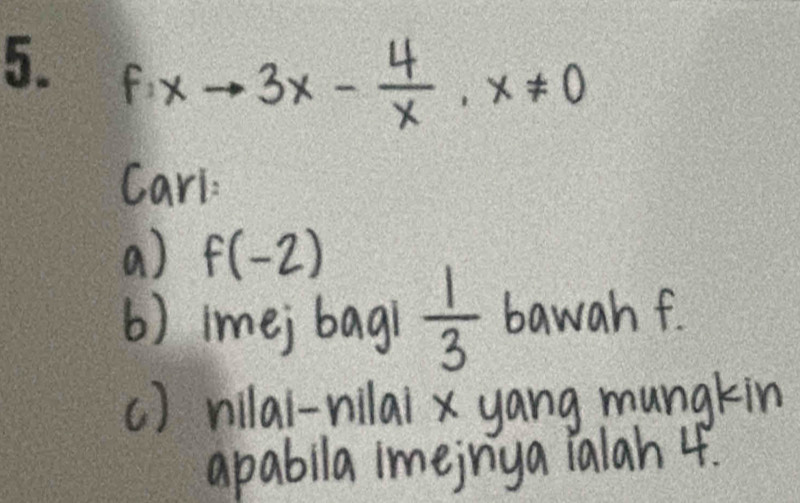 5. f:x → 3x - 4/x , x ≠ 0
Cari:
a) f(-2)
b) imej bagi 1/3 bawah f.
c) nilai-nilai x yang mungkin
apabila imejnya ialah 4.